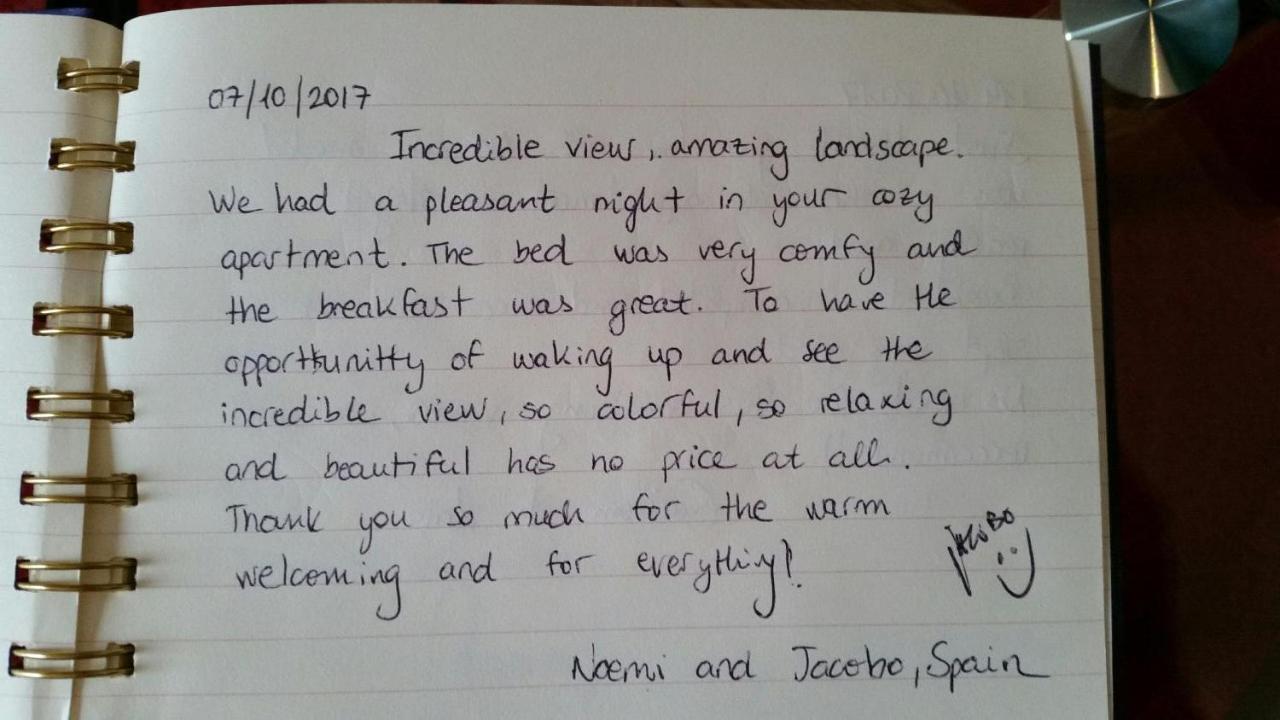 07/10/2017
Incredible view, amazing landscape.
We had a pleasant night in your cozy
apartment. The bed was very comfy and
the breakfast was great. To have the
opporttunitty of waking up and see the
incredible view, so colorful, so relaxing
and beautiful has no price at all.
Thank you so much for the warm
welcoming and for everything!
Jacobo :)
Noemi and Jacobo, Spain